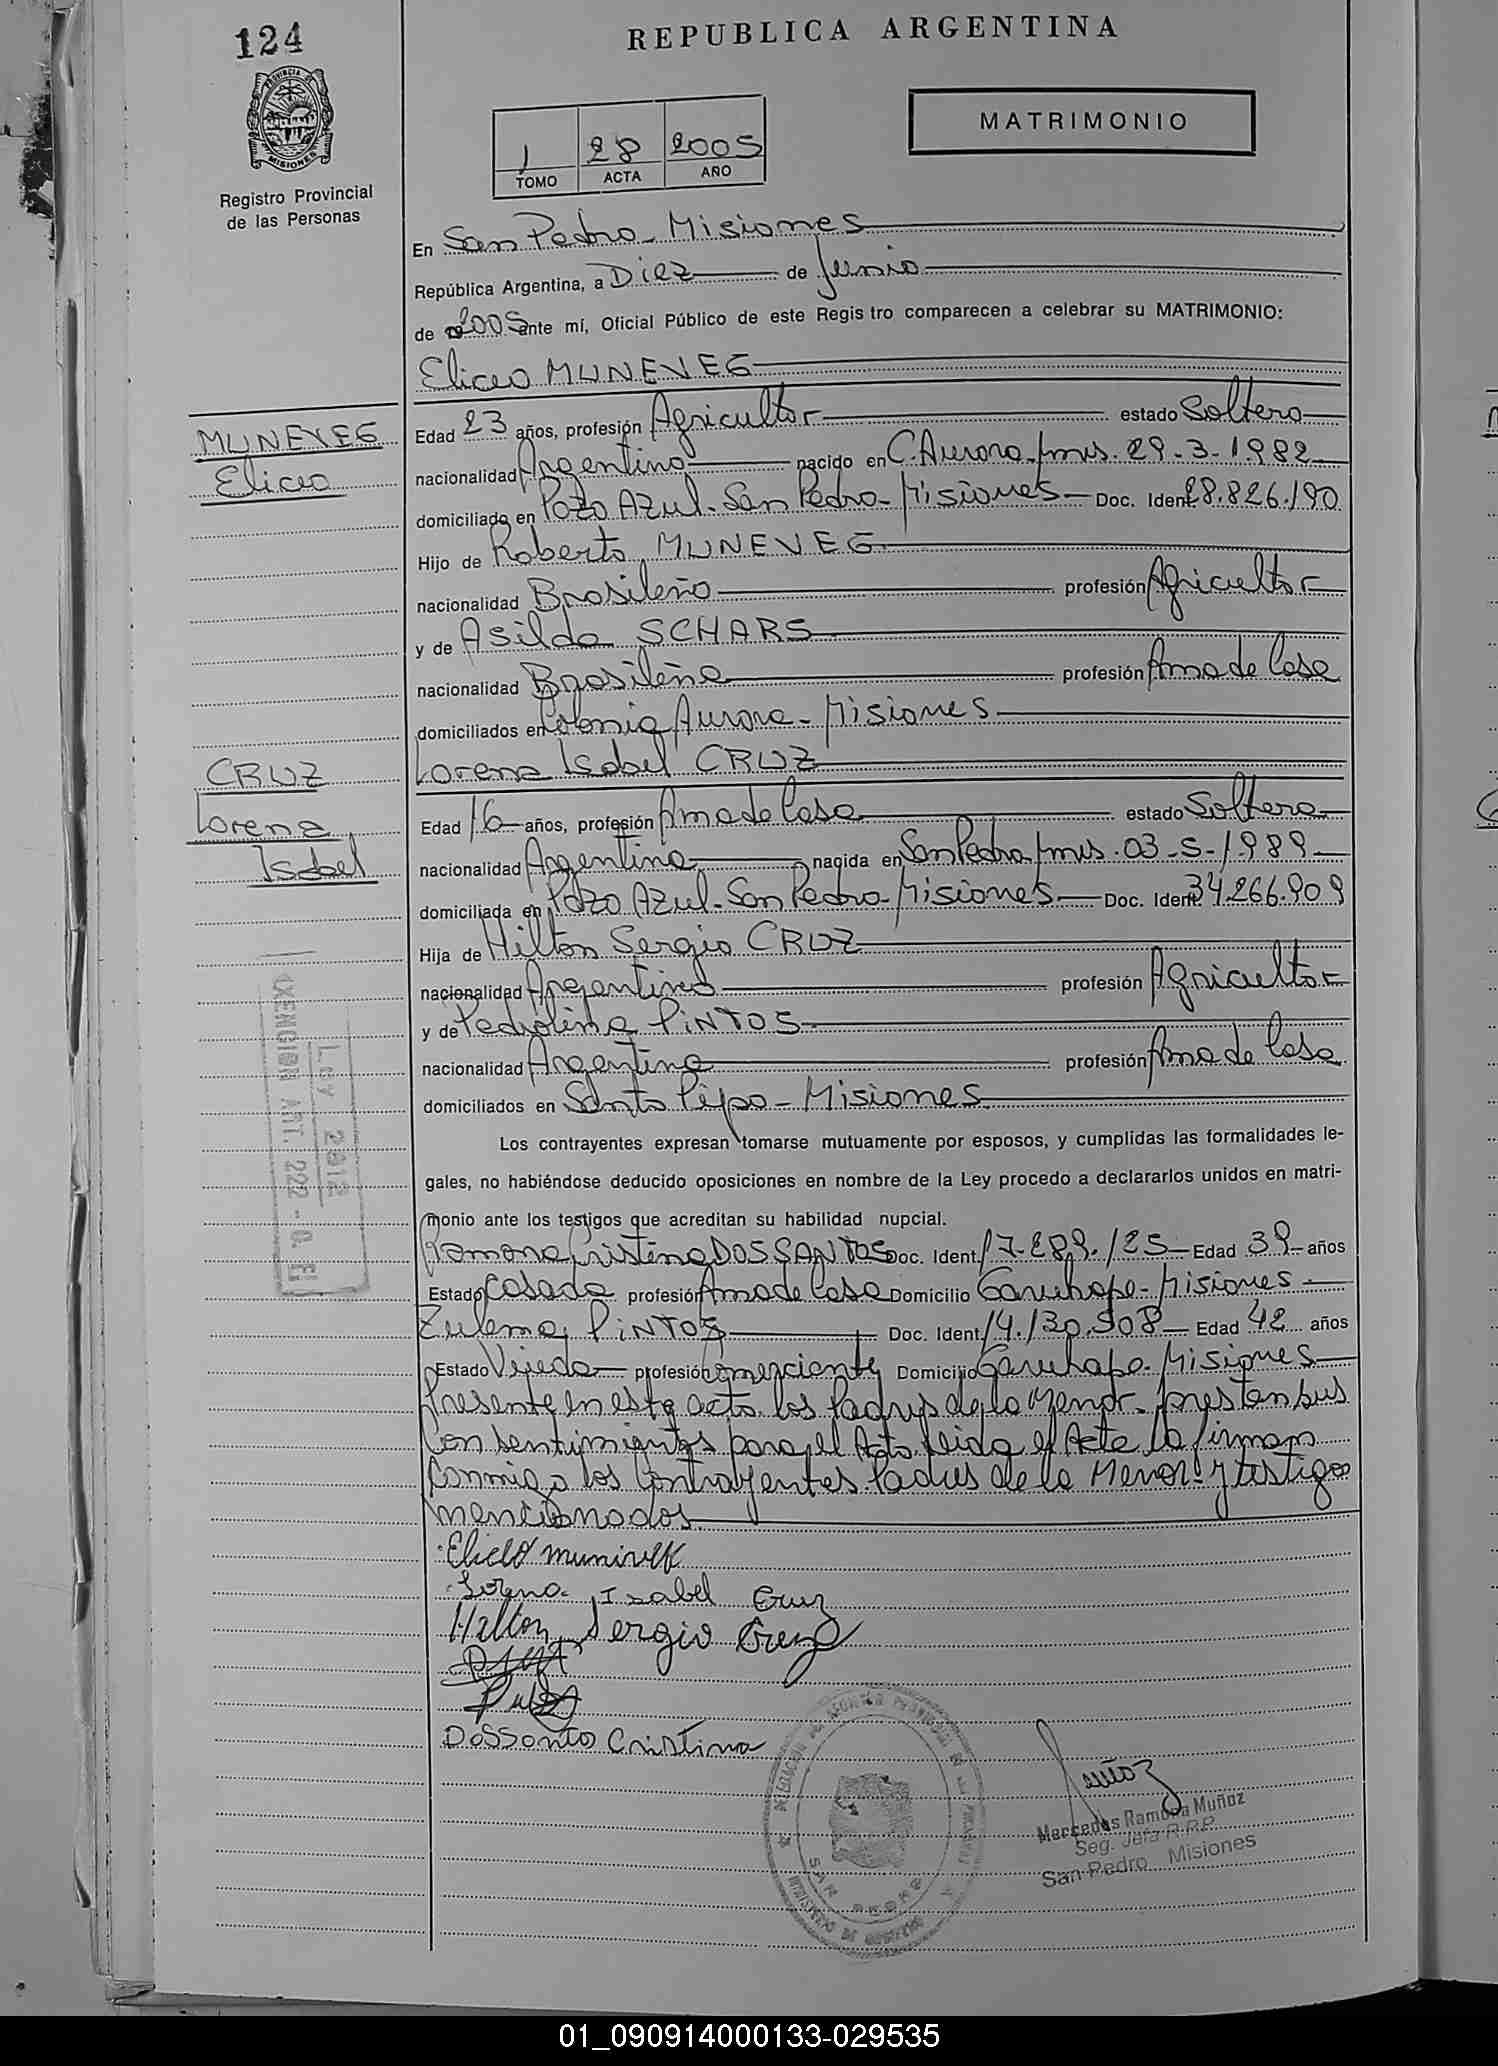 124
REPUBLICA ARGENTINA
PROVINCIA DE MISIONES
Registro Provincial
de las Personas
MATRIMONIO
1 28 2005
TOMO ACTA AÑO
En San Pedro - Misiones
República Argentina, a Diez de Junio
de 2005 ante mí, Oficial Público de este Registro comparecen a celebrar su MATRIMONIO:
Eliceo MUNEVEG
MUNEVEG
Eliceo
Edad 23 años, profesión Agricultor estado Soltero
nacionalidad Argentino nacido en C. Aurora - Mis. 29-3-1982
domiciliado en Pozo Azul - San Pedro - Misiones - Doc. Ident. 28.826.190
Hijo de Roberto MUNEVEG
nacionalidad Brasileño profesión Agricultor
y de Asilda SCHARS
nacionalidad Brasileña profesión Ama de Casa
domiciliados en Colonia Aurora - Misiones
Lorena Isabel CRUZ
CRUZ
Lorena
Isabel
Edad 16 años, profesión Ama de Casa estado Soltera
nacionalidad Argentina nacida en San Pedro - Mis. 03-5-1989
domiciliada en Pozo Azul - San Pedro - Misiones - Doc. Ident. 34.266.909
Hija de Hilton Sergio CRUZ
nacionalidad Argentino profesión Agricultor
y de Pedrolina PINTOS
nacionalidad Argentina profesión Ama de Casa
domiciliados en Santo Pipo - Misiones
EXENCION ART. 222 - O. E)
Ley 2812
Los contrayentes expresan tomarse mutuamente por esposos, y cumplidas las formalidades le-
gales, no habiéndose deducido oposiciones en nombre de la Ley procedo a declararlos unidos en matri-
monio ante los testigos que acreditan su habilidad nupcial.
Ramona Cristina DOS SANTOS Doc. Ident. 17.289.125 - Edad 39 años
Estado Casada profesión Ama de Casa Domicilio Garuhape - Misiones -
Zulema PINTOS Doc. Ident. 14.130.508 - Edad 42 años
Estado Viuda profesión Comerciante Domicilio Garuhape - Misiones
Presente en este acto los Padres de la Menor - prestan sus
consentimientos para el Acto. Leida el Acta la firman
conmigo los contrayentes Padres de la Menor y testigos
mencionados
Eliceo muniveg
Lorena Izabel Cruz
Hilton Sergio Cruz
DosSanto Cristina
Muñoz
Mercedes Ramona Muñoz
Seg. Jefa R.R.P.
San Pedro Misiones
01_090914000133-029535